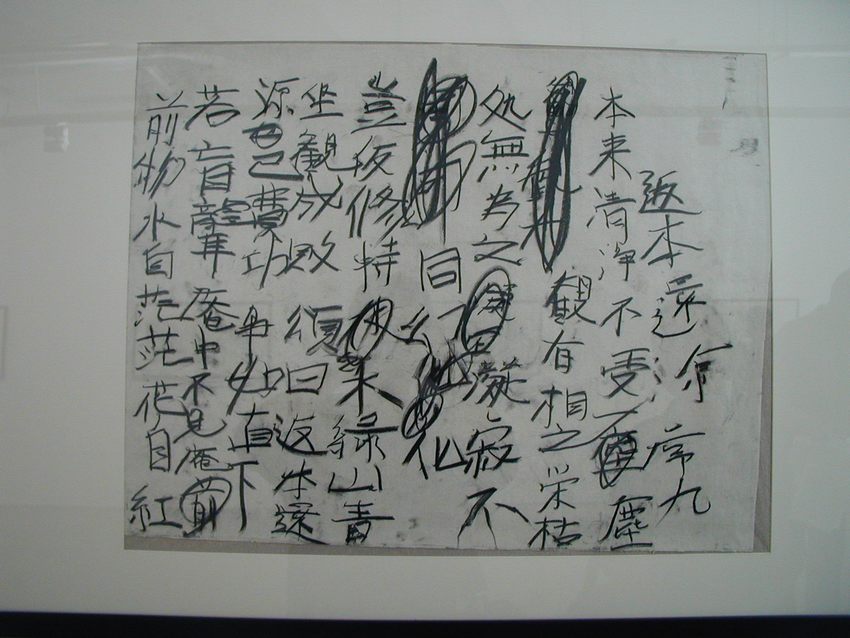 返本還 九
本来清浄不受一塵
観有相之栄枯
処無為之凝寂不
同幻化
豈仮修特水緑山青
坐観成敗 頌曰返本還
源已費功 争如直下
若盲聾庵中不見庵
前物水自茫茫花自紅